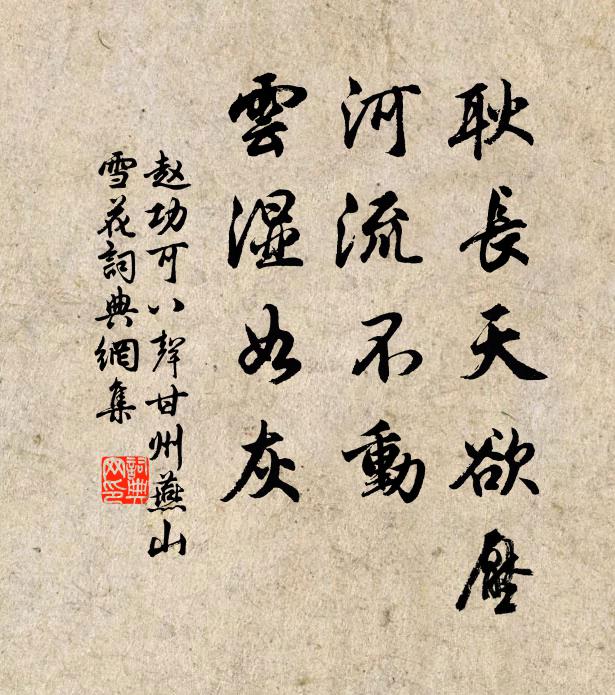 耿長天欲壓
河流不動
雲濕如灰
赵功可八聲甘州燕山
雪花詞典網集
詞典
网印